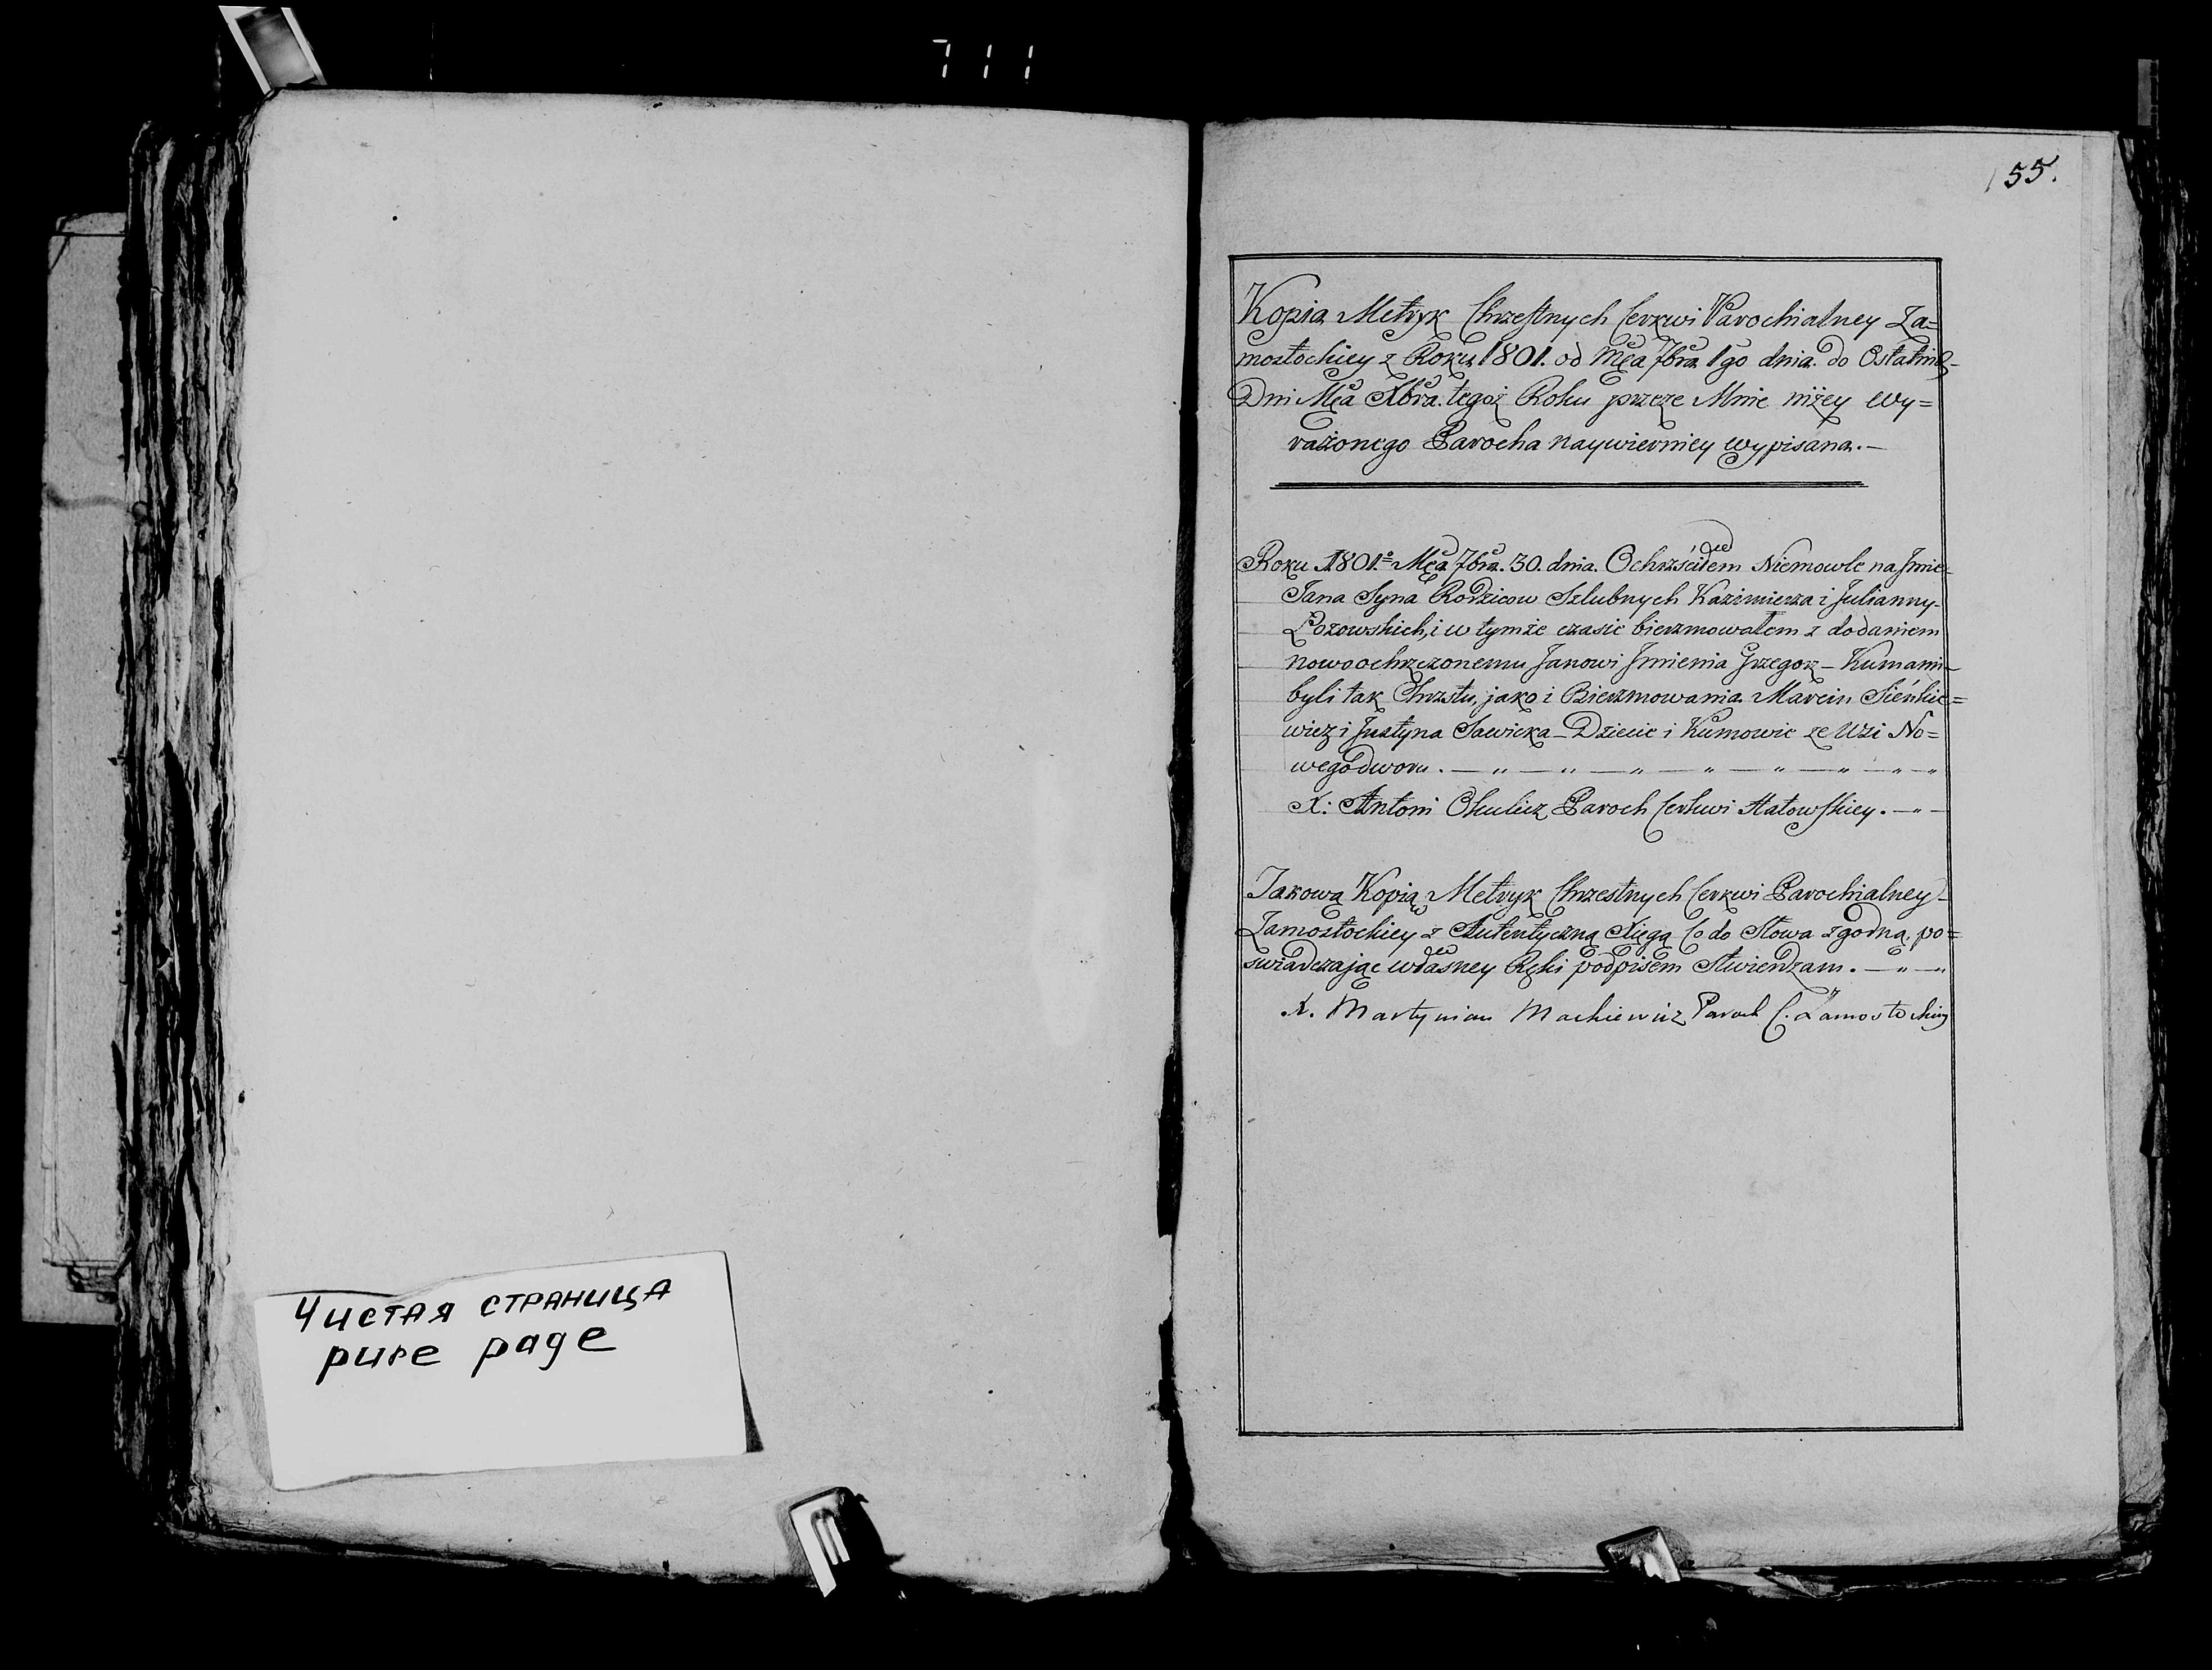 711
Чистая страница
pure page
155.
Kopia Metryk Chrzestnych Cerkwi Parochialney Za=
mostochiey z Roku 1801. od Męa 7bra 1go dnia. do Ostatnie-
Dni Męa Xbra. tegoż Roku przeze Mnie niżey wy=
rażonego Parocha naywierniey wypisana.—
Roku 1801.º Męa 7bra. 30. dnia. Ochrzściłem Niemowle na Jmie-
Jana Syna Rodzicow Szlubnych Kazimierza i Julianny-
Łozowskich, i w tymże czasie bierzmowałem z dodaniem
nowoochrzczonemu Janowi Jmienia Grzegorz – Kumami–
byli tak Chrzstu, jako i Bierzmowania Marcin Sieńkie=
wicz i Justyna Sawicka – Dziecie i Kumowie ze Wsi No=
wegodworu. — „ — „ — „ — „ — „ — „ — „ — „
X: Antoni Okulicz Paroch Cerkwi Hatowskiey. — „ —
Takową Kopią Metryk Chrzestnych Cerkwi Parochialney-
Zamostochiey z Autentyczną Xięgą Co do Słowa zgodną, po=
świadczając własney Ręki podpisem Stwierdzam. — „ — „
X. Martynian Mackiewicz Paroch C. Zamostochiey